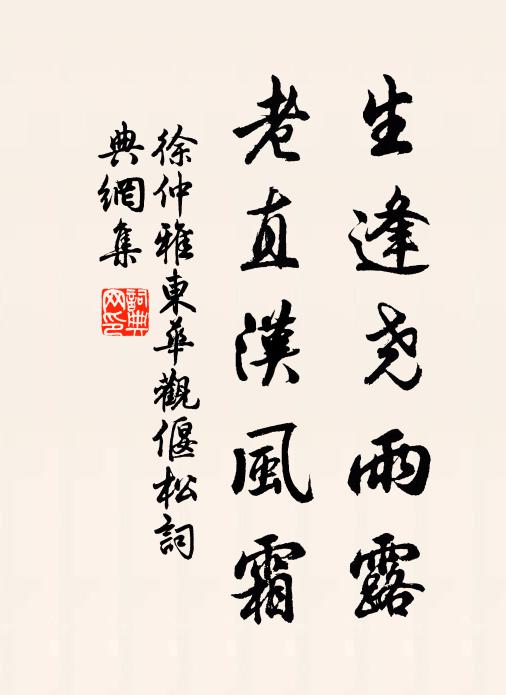 生逢尧雨露
老直漢風霜
徐仲雅東華觀偃松詞
典網集
詞典網印